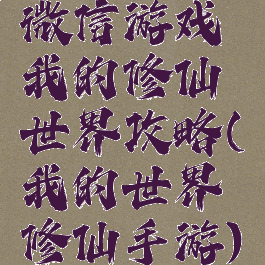 微信游戏
我的修仙
世界攻略(
我的世界
修仙手游)